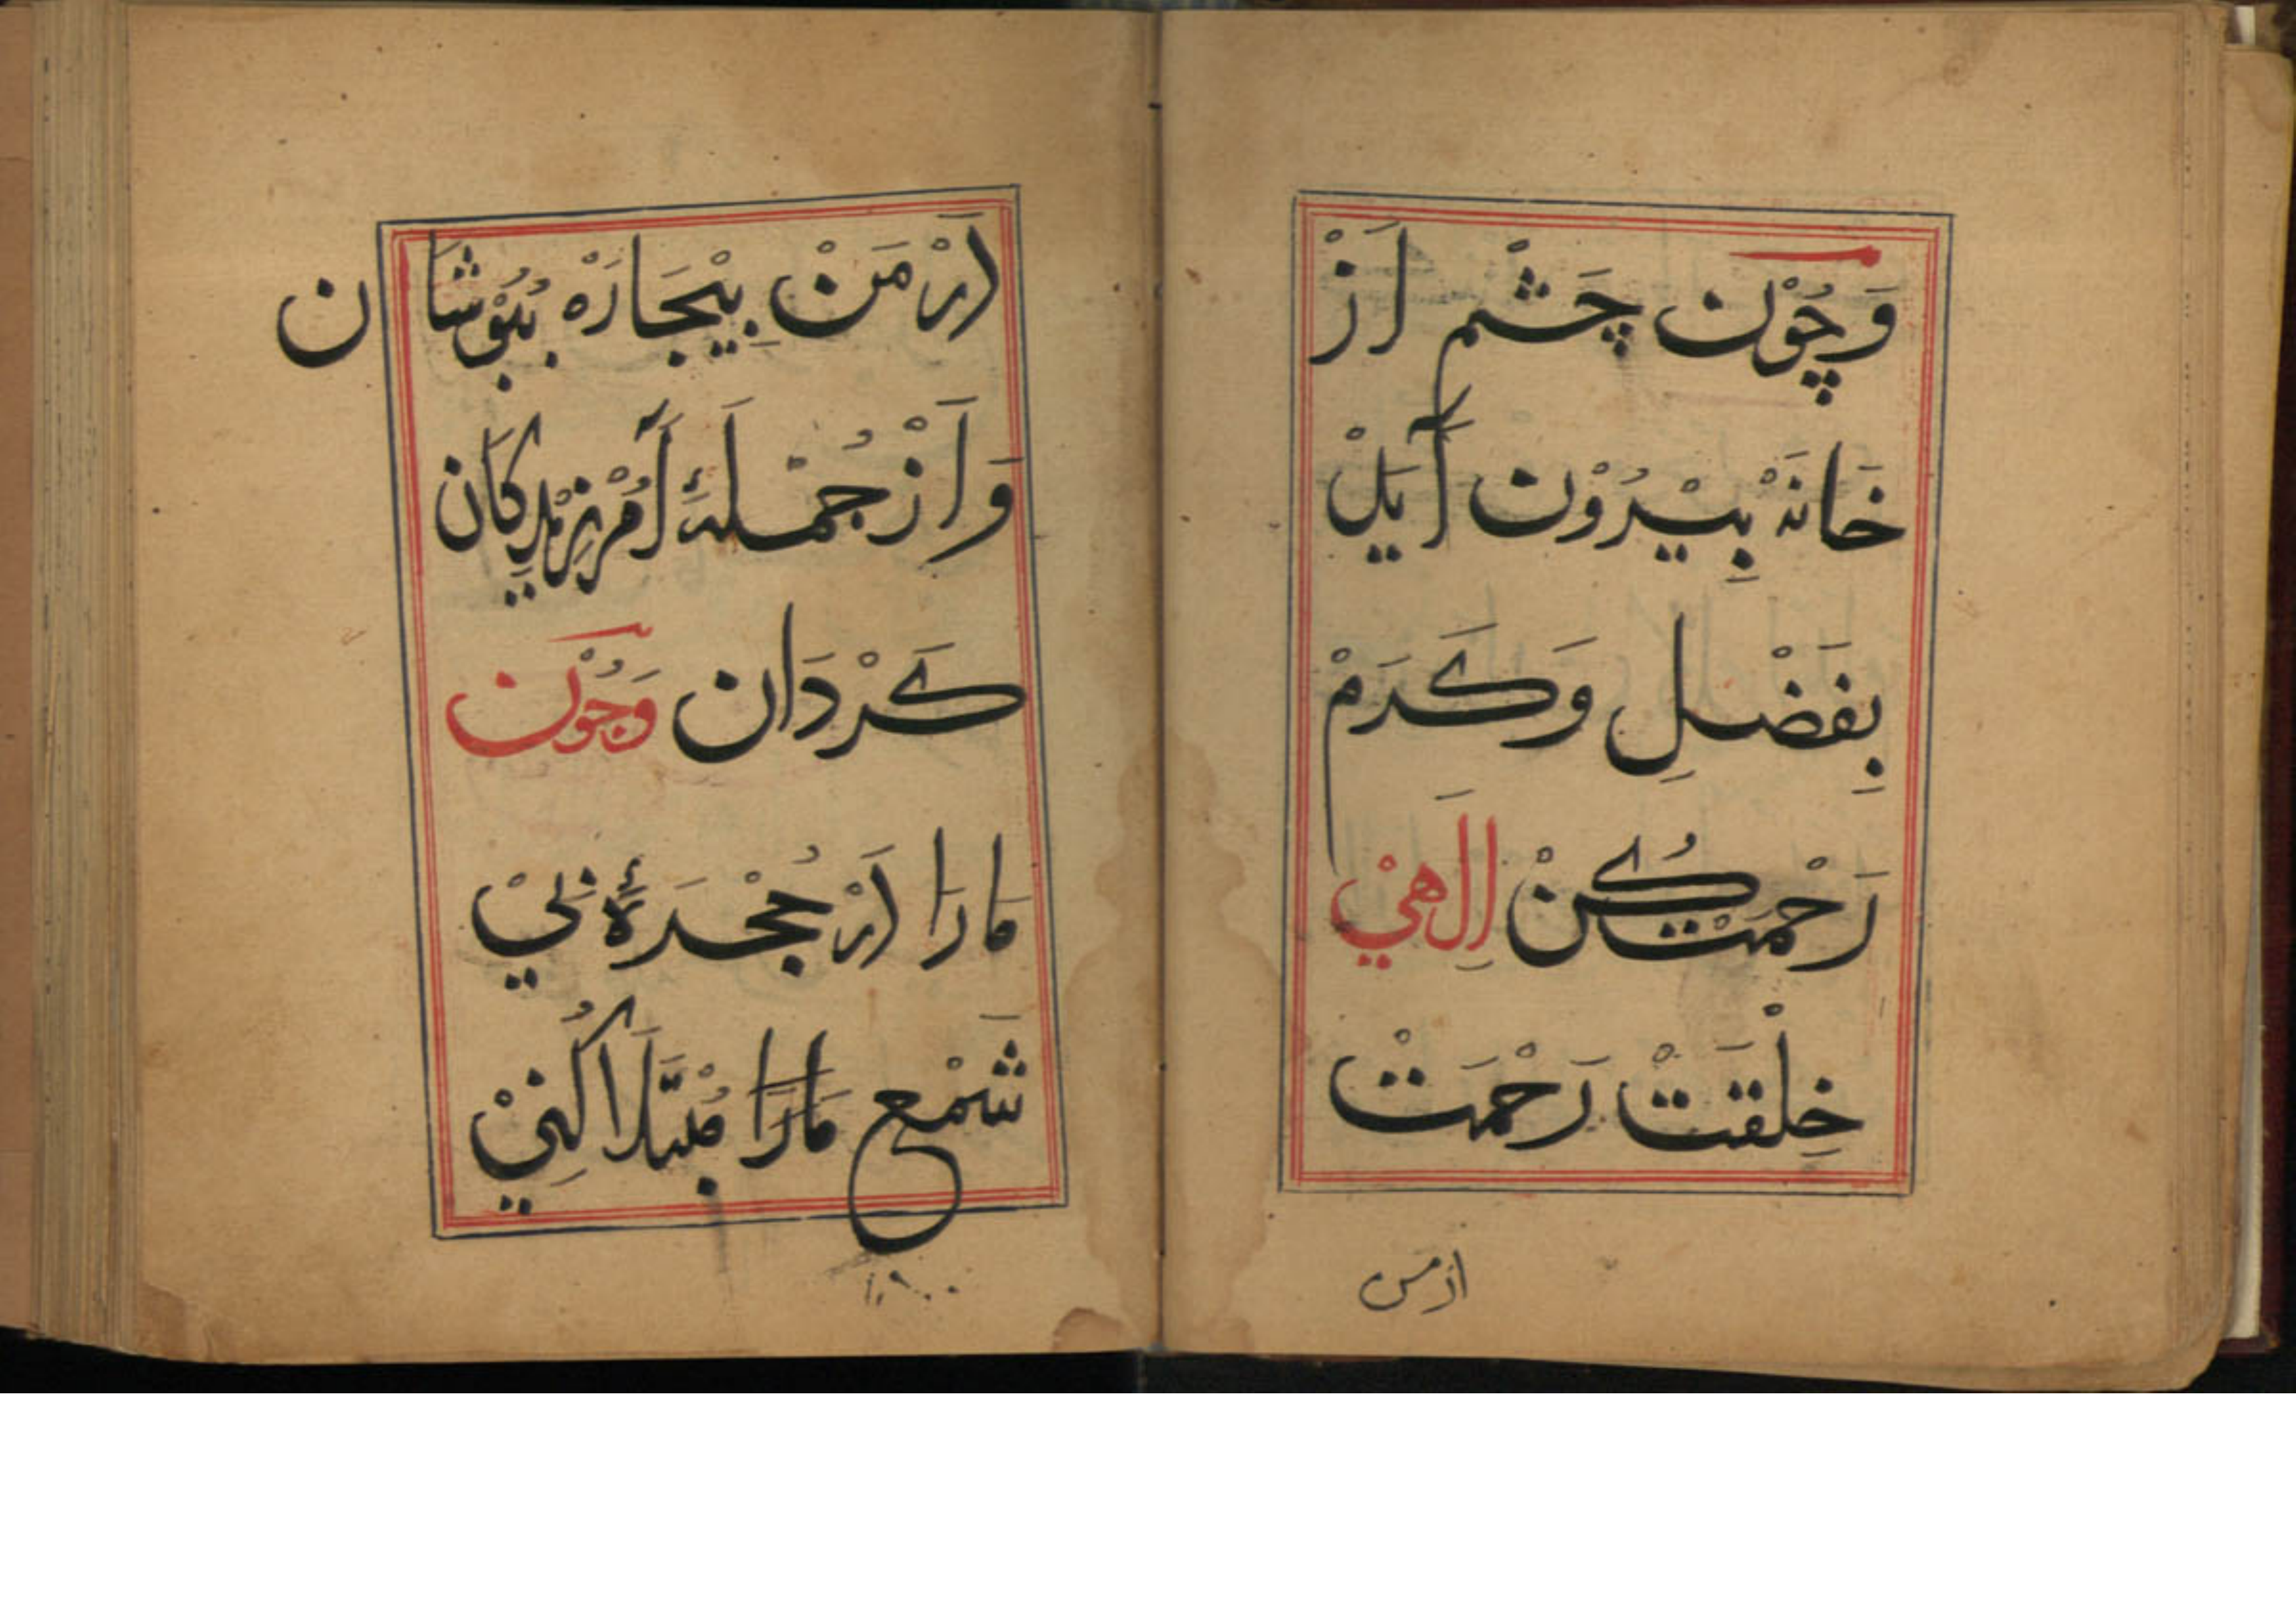 وَچُوْن چَشْم اَزْ
خَانَهْ بِيْرُوْن آيَدْ
بِفَضْلِ وَكَرَمْ
رَحْمَتْ كُنْ اِلَاهِيْ
خِلْقَتْ رَحْمَتْ
ازمن
اَزْ مَنْ بِيْچَارَهْ بِپُوْشَان
وَاَزْ جُمْلَهٔ آمُرْزِيْدِگَان
كَرْدَان وَچُوْن
مَارَا اَزْ حُجْرَهٔ بَيْ
شَمْع مَارَا مُبْتَلَا كُنِيْ